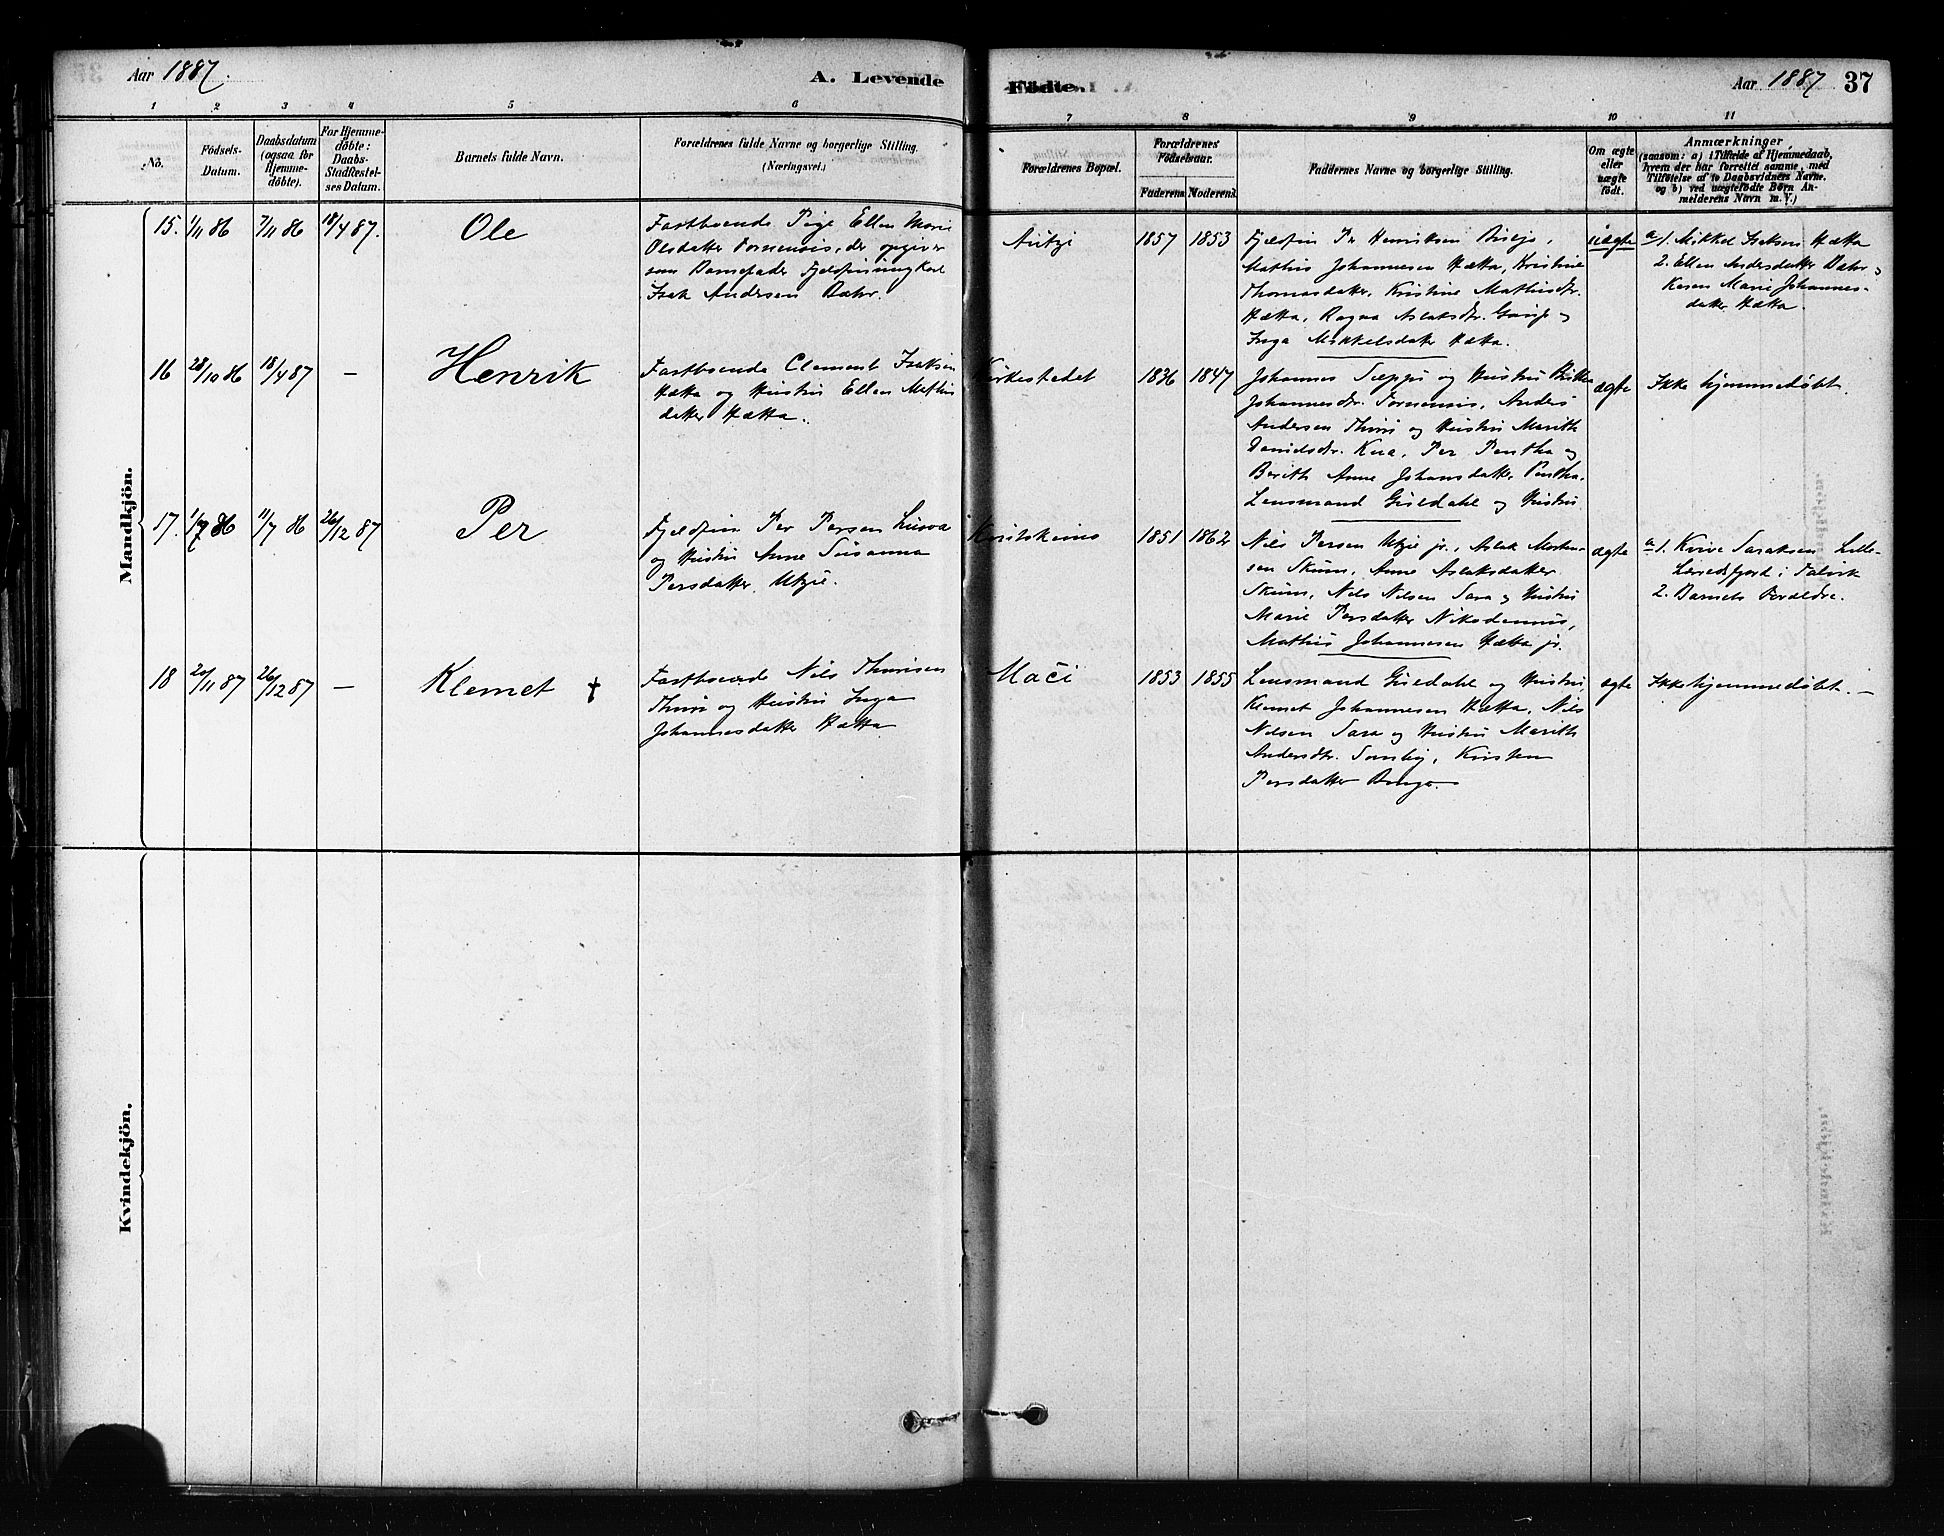 Aar 1887.
A. Levende
Fødte.
Aar 1887
37
1
2
3
4
5
6
7
8
9
10
11
No.
Fødsels-
Datum.
Daabsdatum
(ogsaa for
Hjemme-
døbte).
For Hjemme-
døbte:
Daabs-
Stadfæstel-
ses Datum.
Barnets fulde Navn.
Forældrenes fulde Navne og borgerlige Stilling.
(Næringsvei.)
Forældrenes Bopæl.
Forældrenes
Fødselsaar.
Faderens
Moderens.
Faddernes Navne og borgerlige Stilling.
Om ægte
eller
uægte
født.
Anmærkninger,
(saasom: a) i Tilfælde af Hjemmedaab,
hvem der har forrettet samme, med
Tilføielse af to Daabsvidners Navne.
og b) ved uægtefødte Børn An-
melderens Navn m. V.)
Mandkjön.
15.
1/11 86
7/11 86
18/4 87.
Ole
Fastboende Pige Ellen Marie
Olsdatter Tornensis, der opgiver
som Barnefader Fjeldfinungkarl
Isak Andersen Bahr.
1857
1853
Fjeldfin Per Henriksen
Mathis Johannesen Hætta, Kristine
Thomasdatter, Kristine Mathisdtr.
Hætta, Ragna Aslaksdtr.
Inga Mikkelsdatter Hætta.
uægte
a/1. Mikkel Isaksen Hætta
2. Ellen Andersdatter Bahr og
Karen Marie Johannes-
datter Hætta.
16
28/10 86
18/4 87
—
Henrik
Fastboende Clement Isaksen
Hætta og Hustru Ellen Mathis
datter Hætta.
Kirkestedet
1836
1847
Johannes og Hustru
Johannesdtr. Tornensis, Anders
Andersen Thuri og Hustru Marith
Danielsdtr. Per Pentha og
Berith Anne Johansdatter Pentha.
Lensmand Guldahl og Hustru
ægte
Ikke hjemmedøbt.
17.
1/7 86
11/7 86
26/12 87
Per
Fjeldfin Per Persen
og Hustru Anne Susanna
Persdatter Utzie.
1851
1862
Nils Persen Utzie jr., Aslak Morten-
sen Skum, Anne Aslaksdatter
Skum, Nils Nilsen Sara og Hustru
Marie Persdatter Nikodemus,
Mathis Johannesen Hætta jr.
ægte
a/1. Saraksen Lille-
i Talvik
2. Barnets Forældre.
18
20/11 87
26/12 87
—
Klemet †
Fastboende Nils Thurisen
Thuri og Hustru Inga
Johannesdatter Hætta
Mači
1853
1855
Lensmand Guldahl og Hustru,
Klemet Johannesen Hætta, Nils
Nilsen Sara og Hustru Marith
Andersdtr. Kirsten
Persdatter
ægte
Ikke hjemmedøbt. —
Kvindekjön.